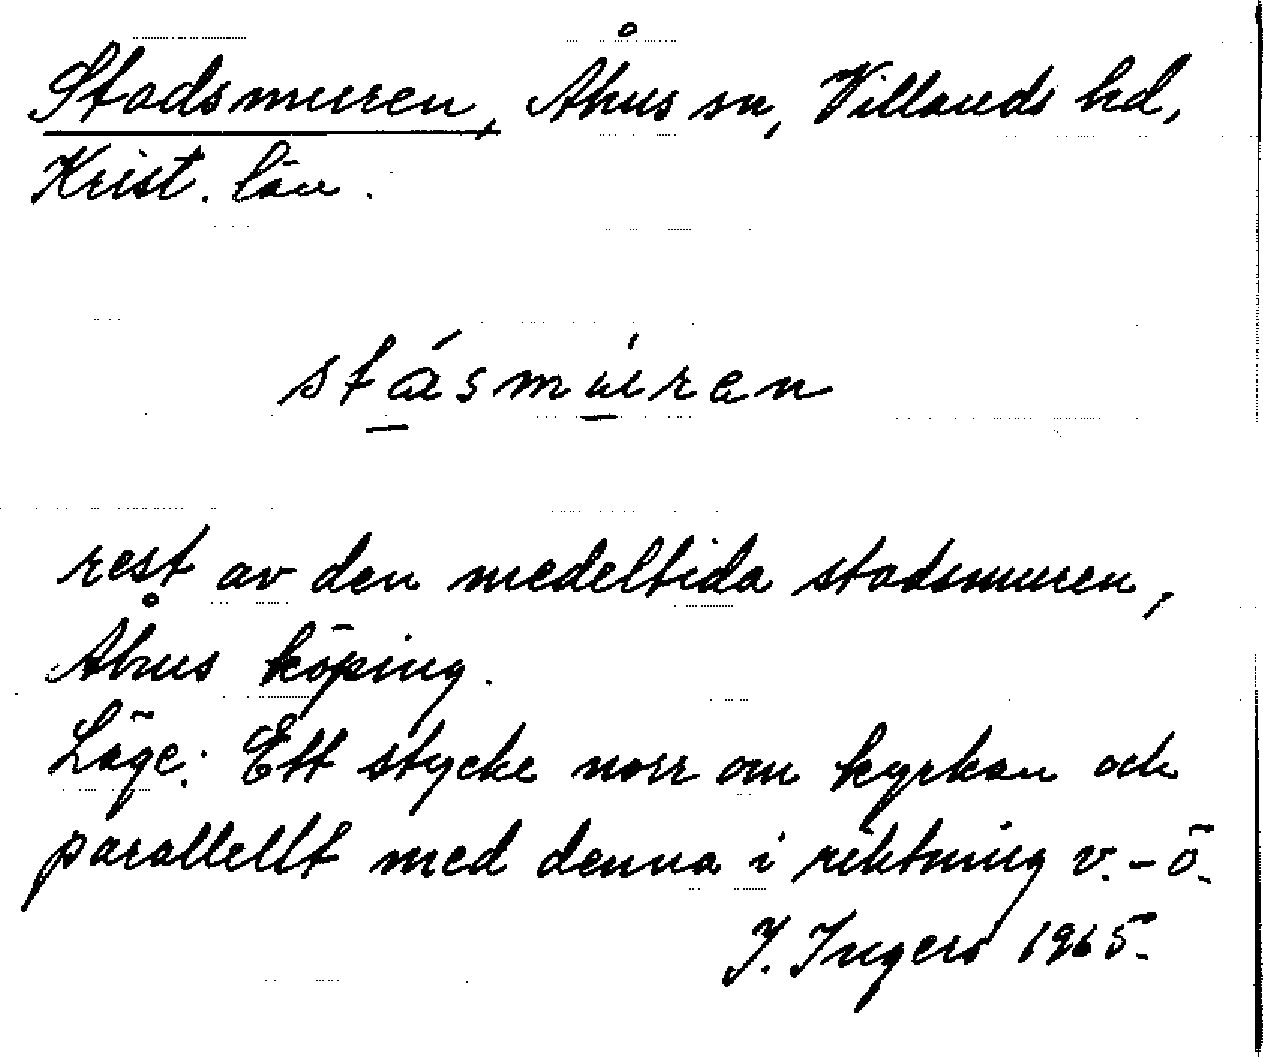 Stadsmuren, Åhus sn, Villands hd,
Krist. län.
stásmùren
rest av den medeltida stadsmuren,
Åhus köping.
Läge: Ett stycke norr om kyrkan och
parallellt med denna i riktning v.-ö.
I. Ingers 1965.